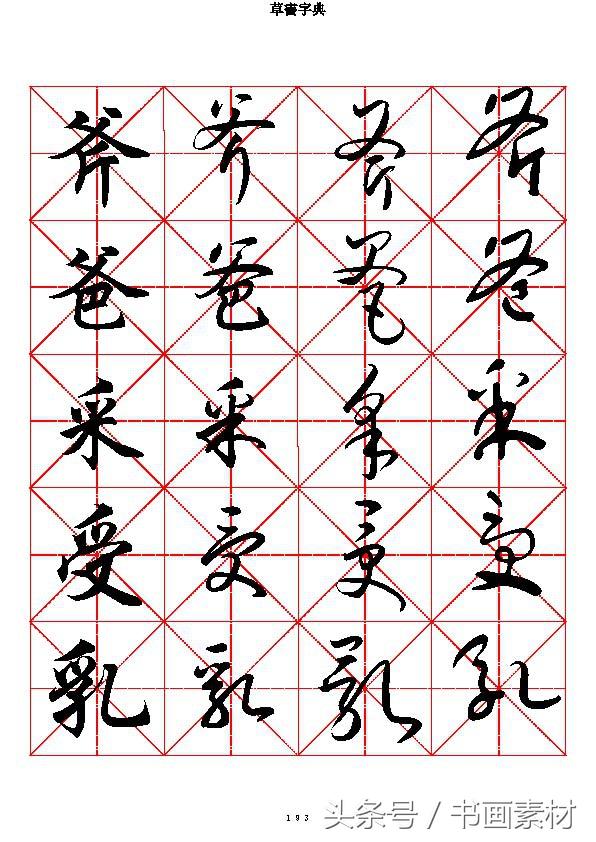 草書字典
斧 斧 斧 斧
爸 爸 爸 爸
采 采 采 采
受 受 受 受
乳 乳 乳 乳
193
头条号 / 书画素材